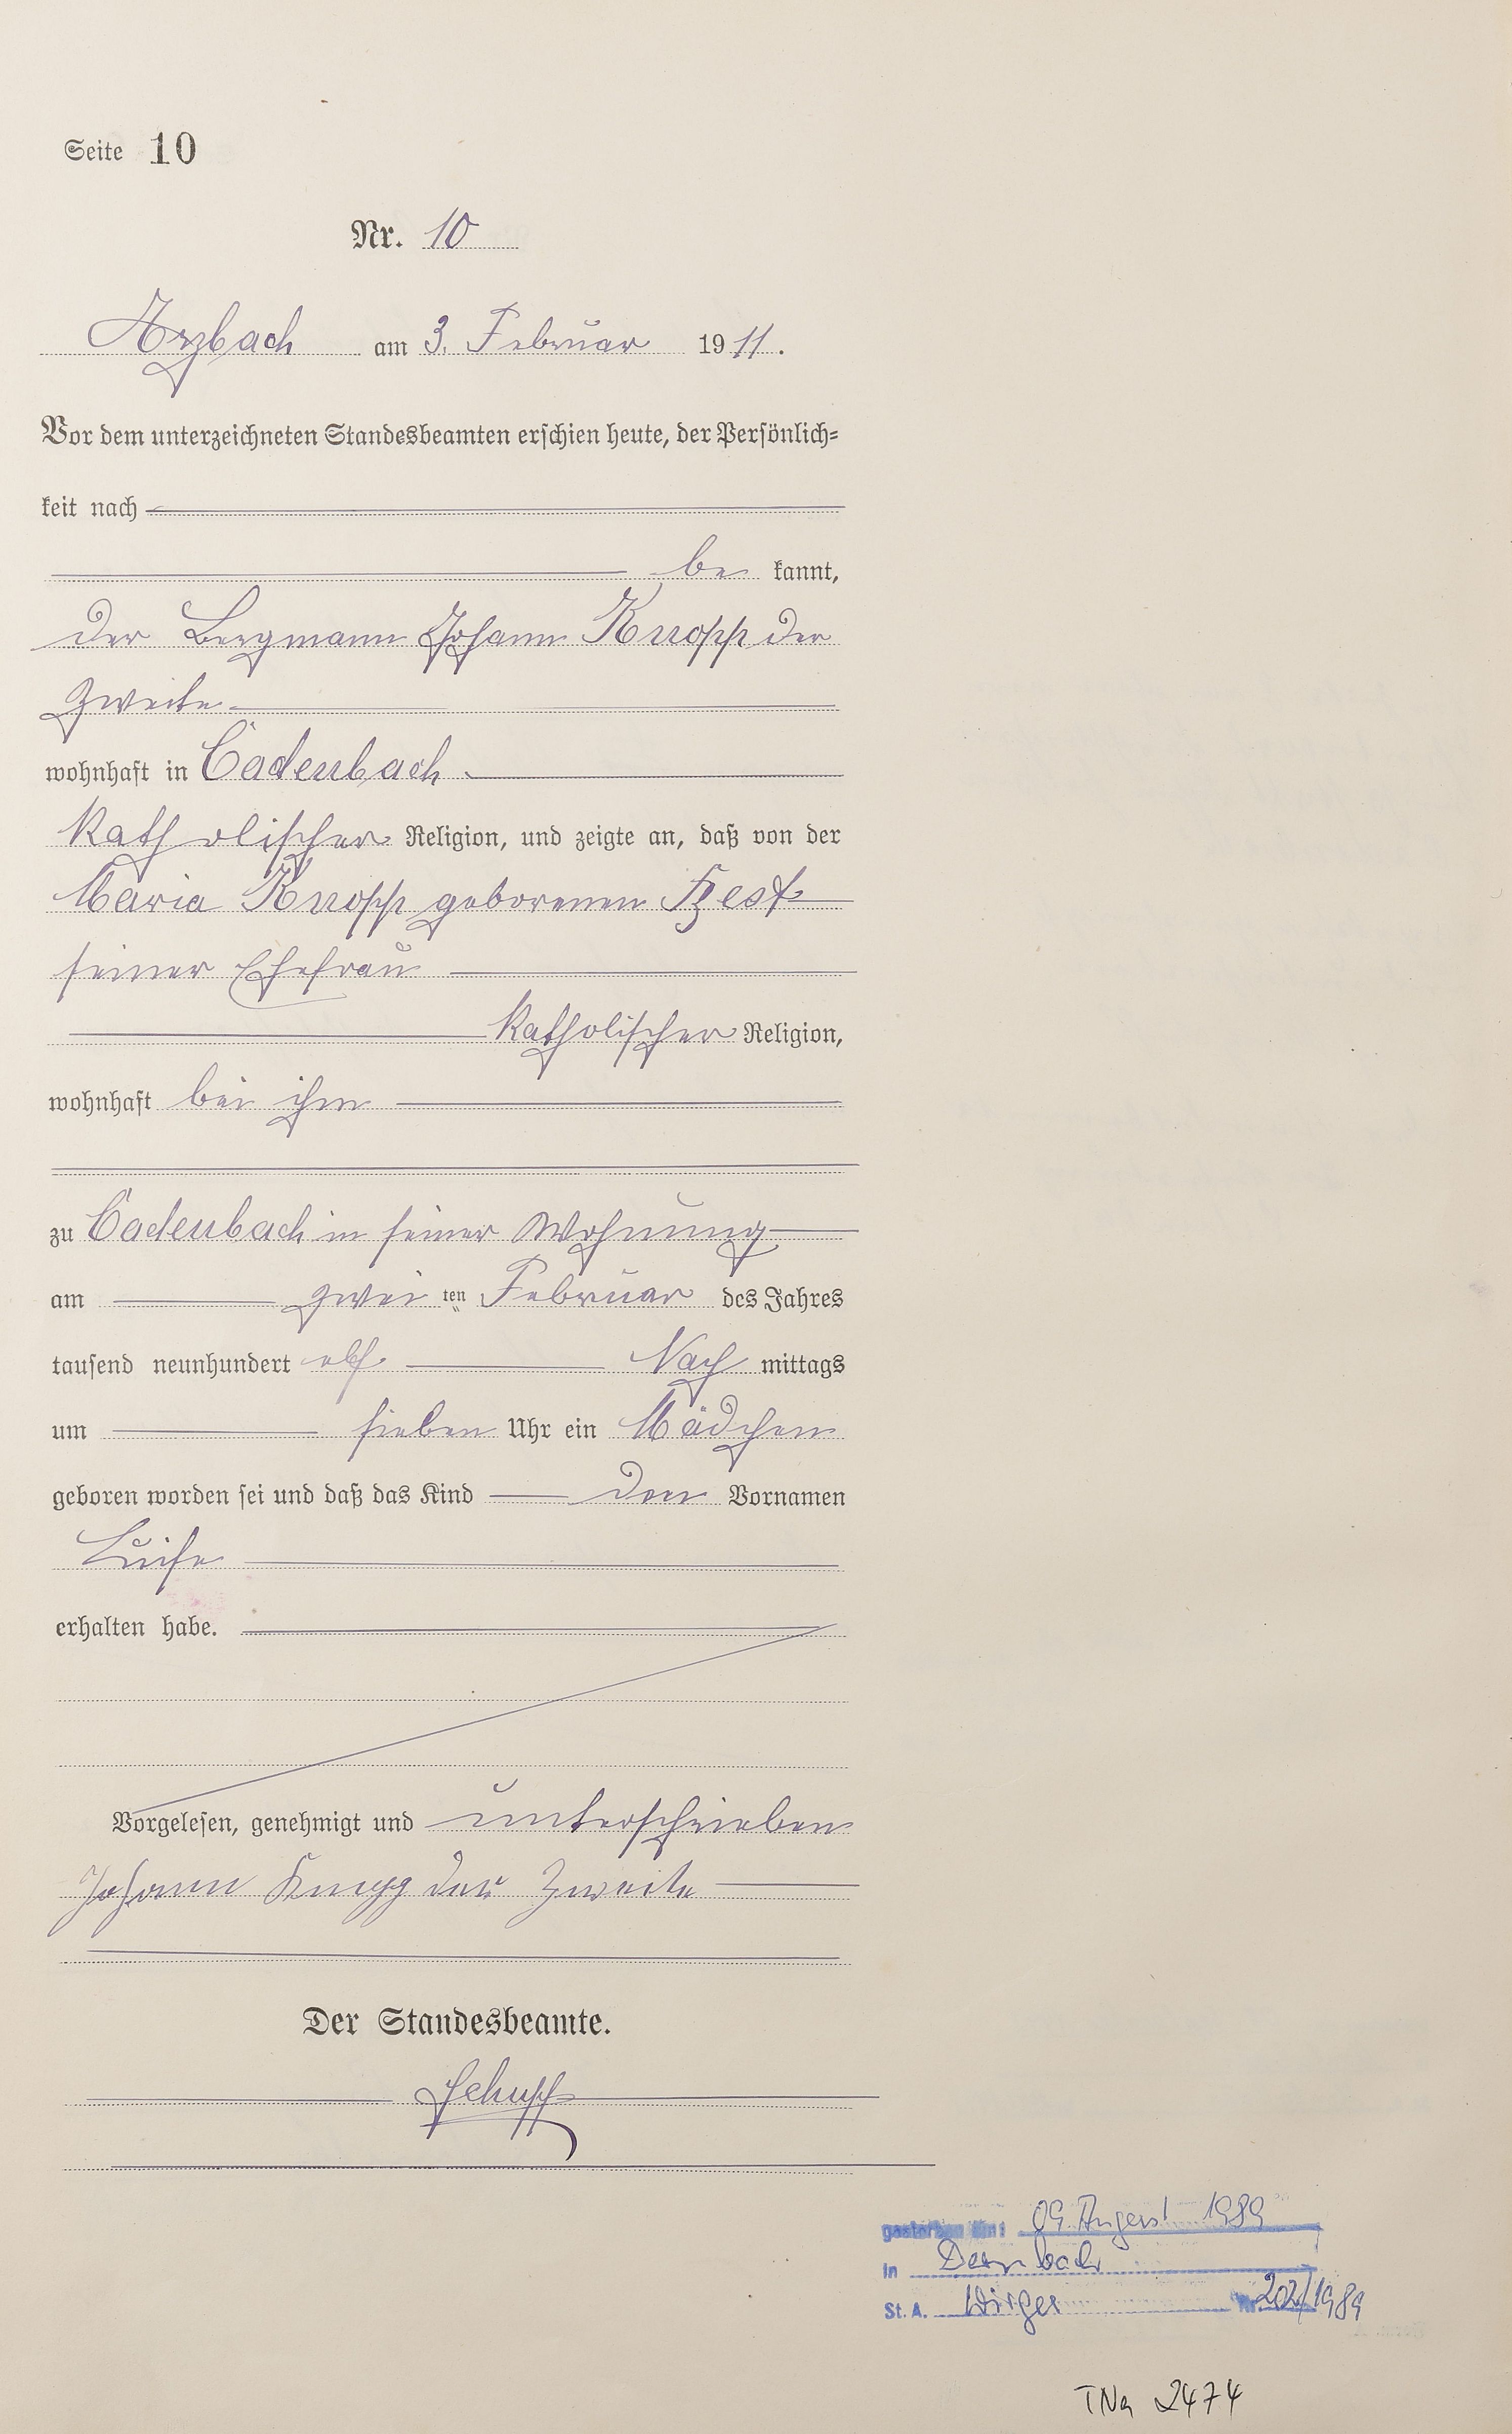 Seite 10
Nr. 10
Arzbach am 3. Februar 1911.
Vor dem unterzeichneten Standesbeamten erschien heute, der Persönlich-
keit nach
be kannt,
der Bergmann Johann Knopp der
Zweite
wohnhaft in Cadenbach
katholischer Religion, und zeigte an, daß von der
Maria Knopp geborenen
seiner Ehefrau
katholischer Religion,
wohnhaft bei ihm
zu Cadenbach in seiner Wohnung
am zwei ten Februar des Jahres
tausend neunhundert elf Nach mittags
um sieben Uhr ein Mädchen
geboren worden sei und daß das Kind den Vornamen
Luise
erhalten habe.
Vorgelesen, genehmigt und unterschrieben
Johann Knopp der Zweite
Der Standesbeamte.
gestorben am: 09. August 1989
in Dernbach
St. A. Wirges Nr. 202/1989
TNa 2474